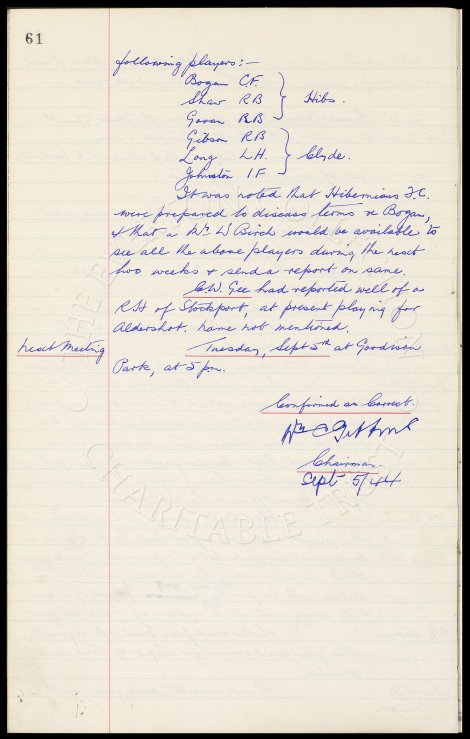 61
following players:-
Bogan CF.
Shaw RB
Govan RB
Hibs.
Gibson RB
Long LH.
Johnston IF
Clyde.
It was noted that Hibernians F.C.
were prepared to discuss terms re Bogan,
& that a Mr. W Birch would be available to
see all the above players during the next
two weeks & send a report on same.
C.W. Gee had reported well of a
RH of Stockport, at present playing for
Aldershot. name not mentioned.
Next Meeting
Tuesday, Sept 5th at Goodison
Park, at 5 pm.
Confirmed as Correct.
Wm C Gibbins
Chairman
Sept 5/44
CHARITABLE TRUST